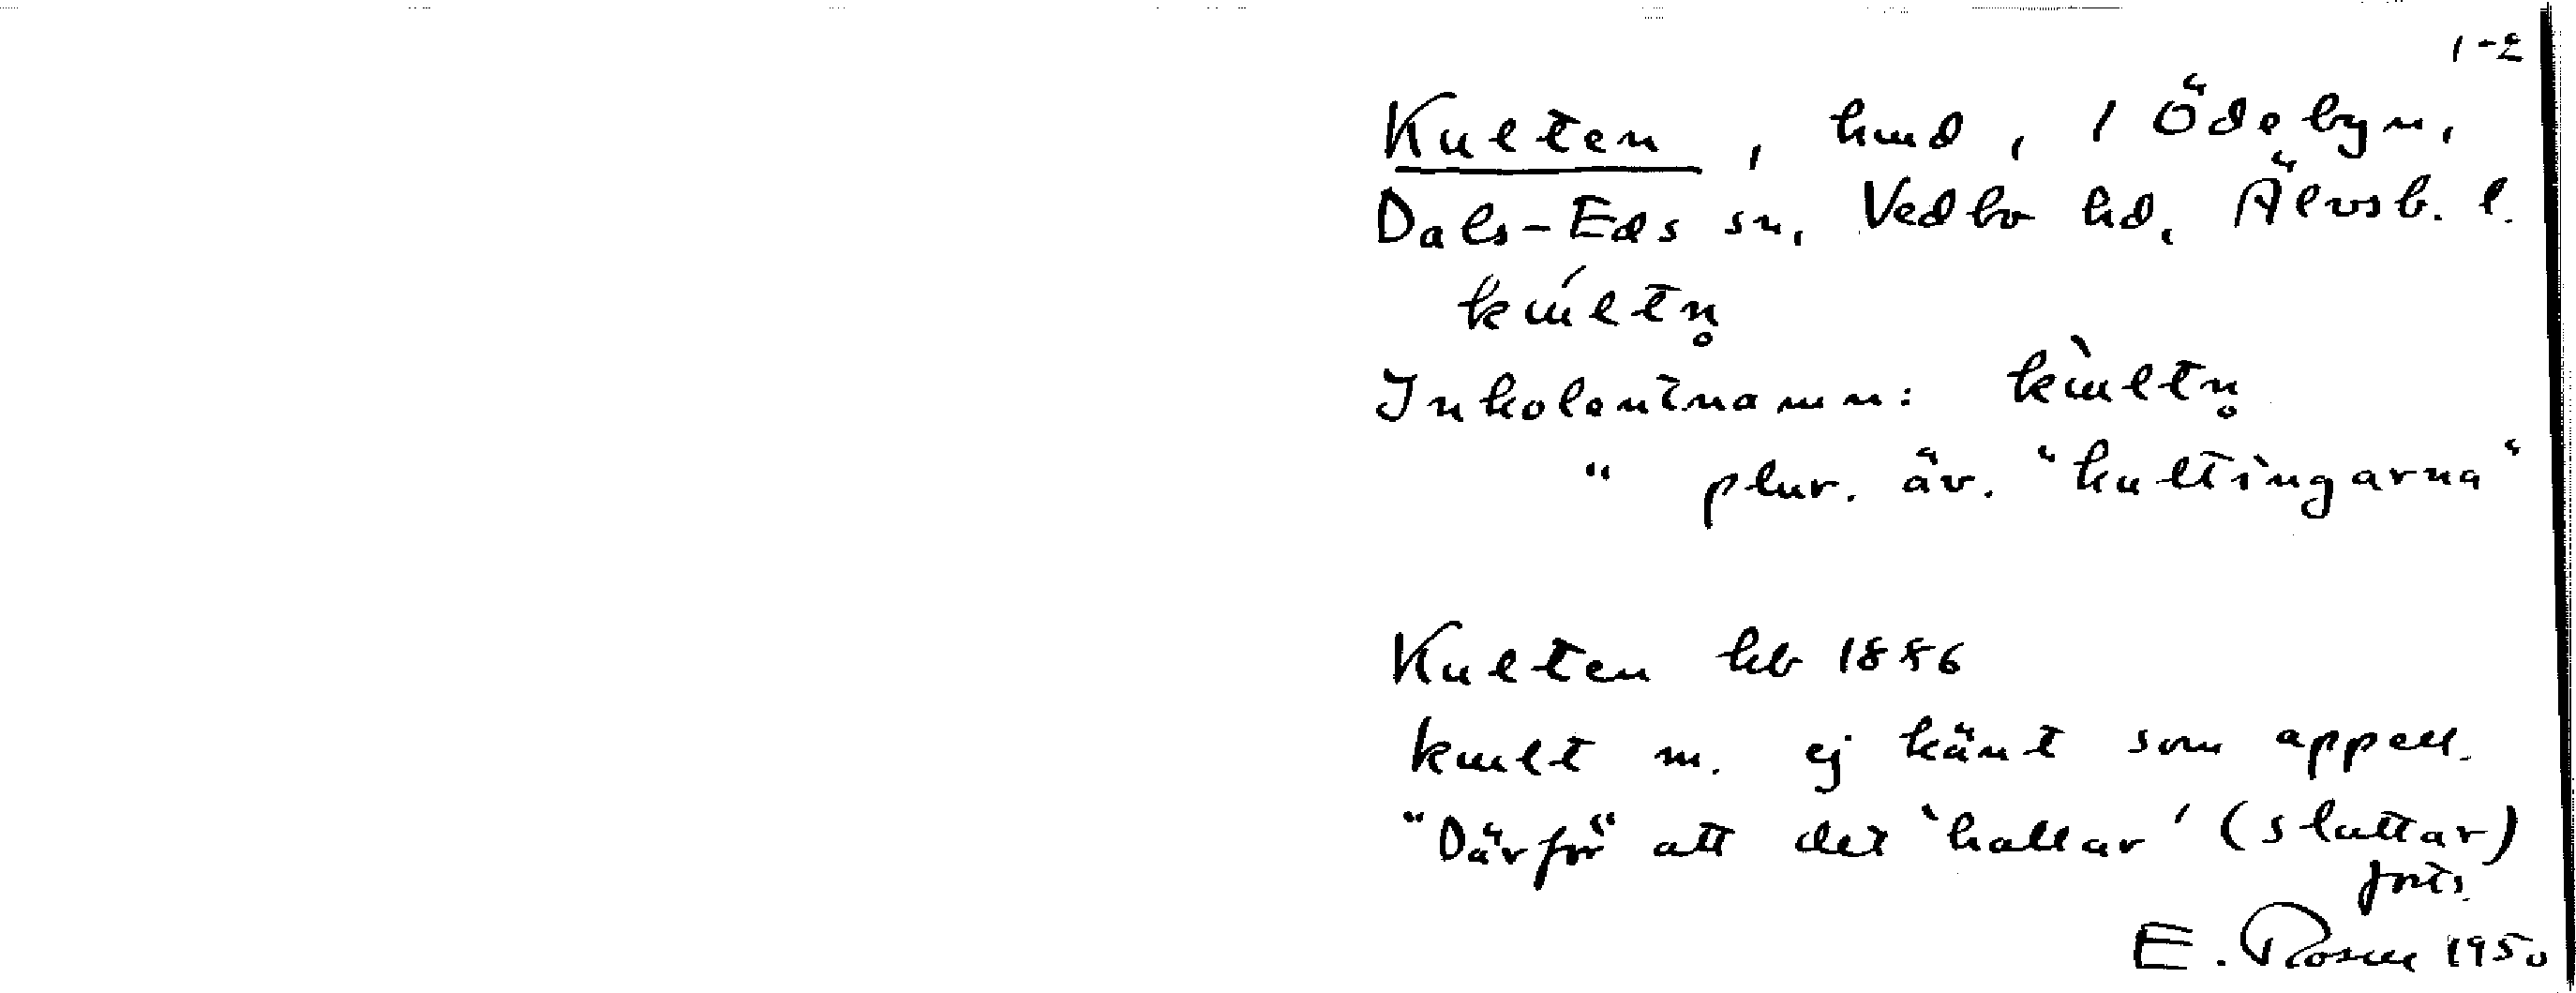 1-2
Kulten, hmd, 1 Ödebyn,
Dals-Eds sn, Vedbo hd, Älvsb. l.
kɯ́ltn̥
Inkolentnamn: kɯ̀ltn̥
" plur. äv. "kultingarna"
Kulten kb 1886
kɯlt m. ej känt som appell.
"Därför" att det 'hallar' (sluttar)
forts.
E. Rosell 1950